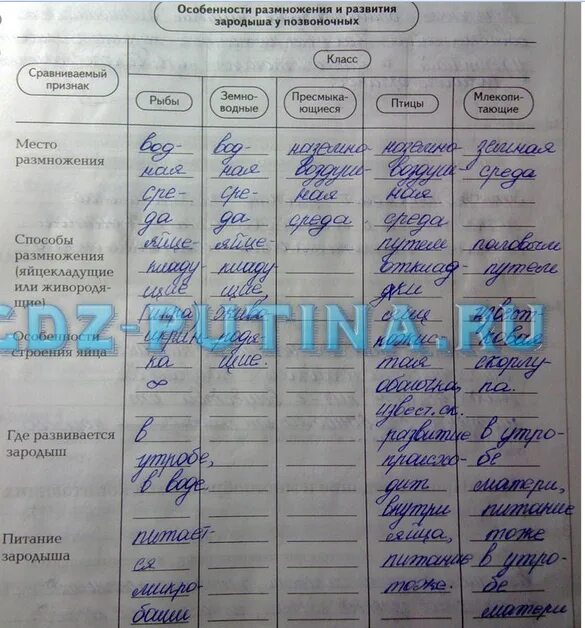 Особенности размножения и развития
зародыша у позвоночных
Класс
Сравниваемый
признак
Рыбы
Земно-
водные
Пресмыка-
ющиеся
Птицы
Млекопи-
тающие
Место
размножения
вод-
ная
сре-
да
вод-
ная
сре-
да
наземно-
воздуш-
ная
среда
наземно-
воздуш-
ная
среда
земная
среда
Способы
размножения
(яйцекладущие
или живородя-
щие)
яйце-
кладу-
щие
(икра)
яйце-
кладу-
щие,
живо-
родя-
щие.
путем
отклад-
ки
яиц
половым
путем
GDZ-PUTINA.RU
Особенности
строения яйца
икрин-
ка
∞
тая
оболочка,
извест. ск.
извест-
ковая
скорлу-
па.
Где развивается
зародыш
в
утробе,
в воде.
развитие
происхо-
дит
внутри
яйца,
в утро-
бе
матери,
Питание
зародыша
питает-
ся
микро-
бами
питание
тоже.
питание
тоже
в утро-
бе
матери